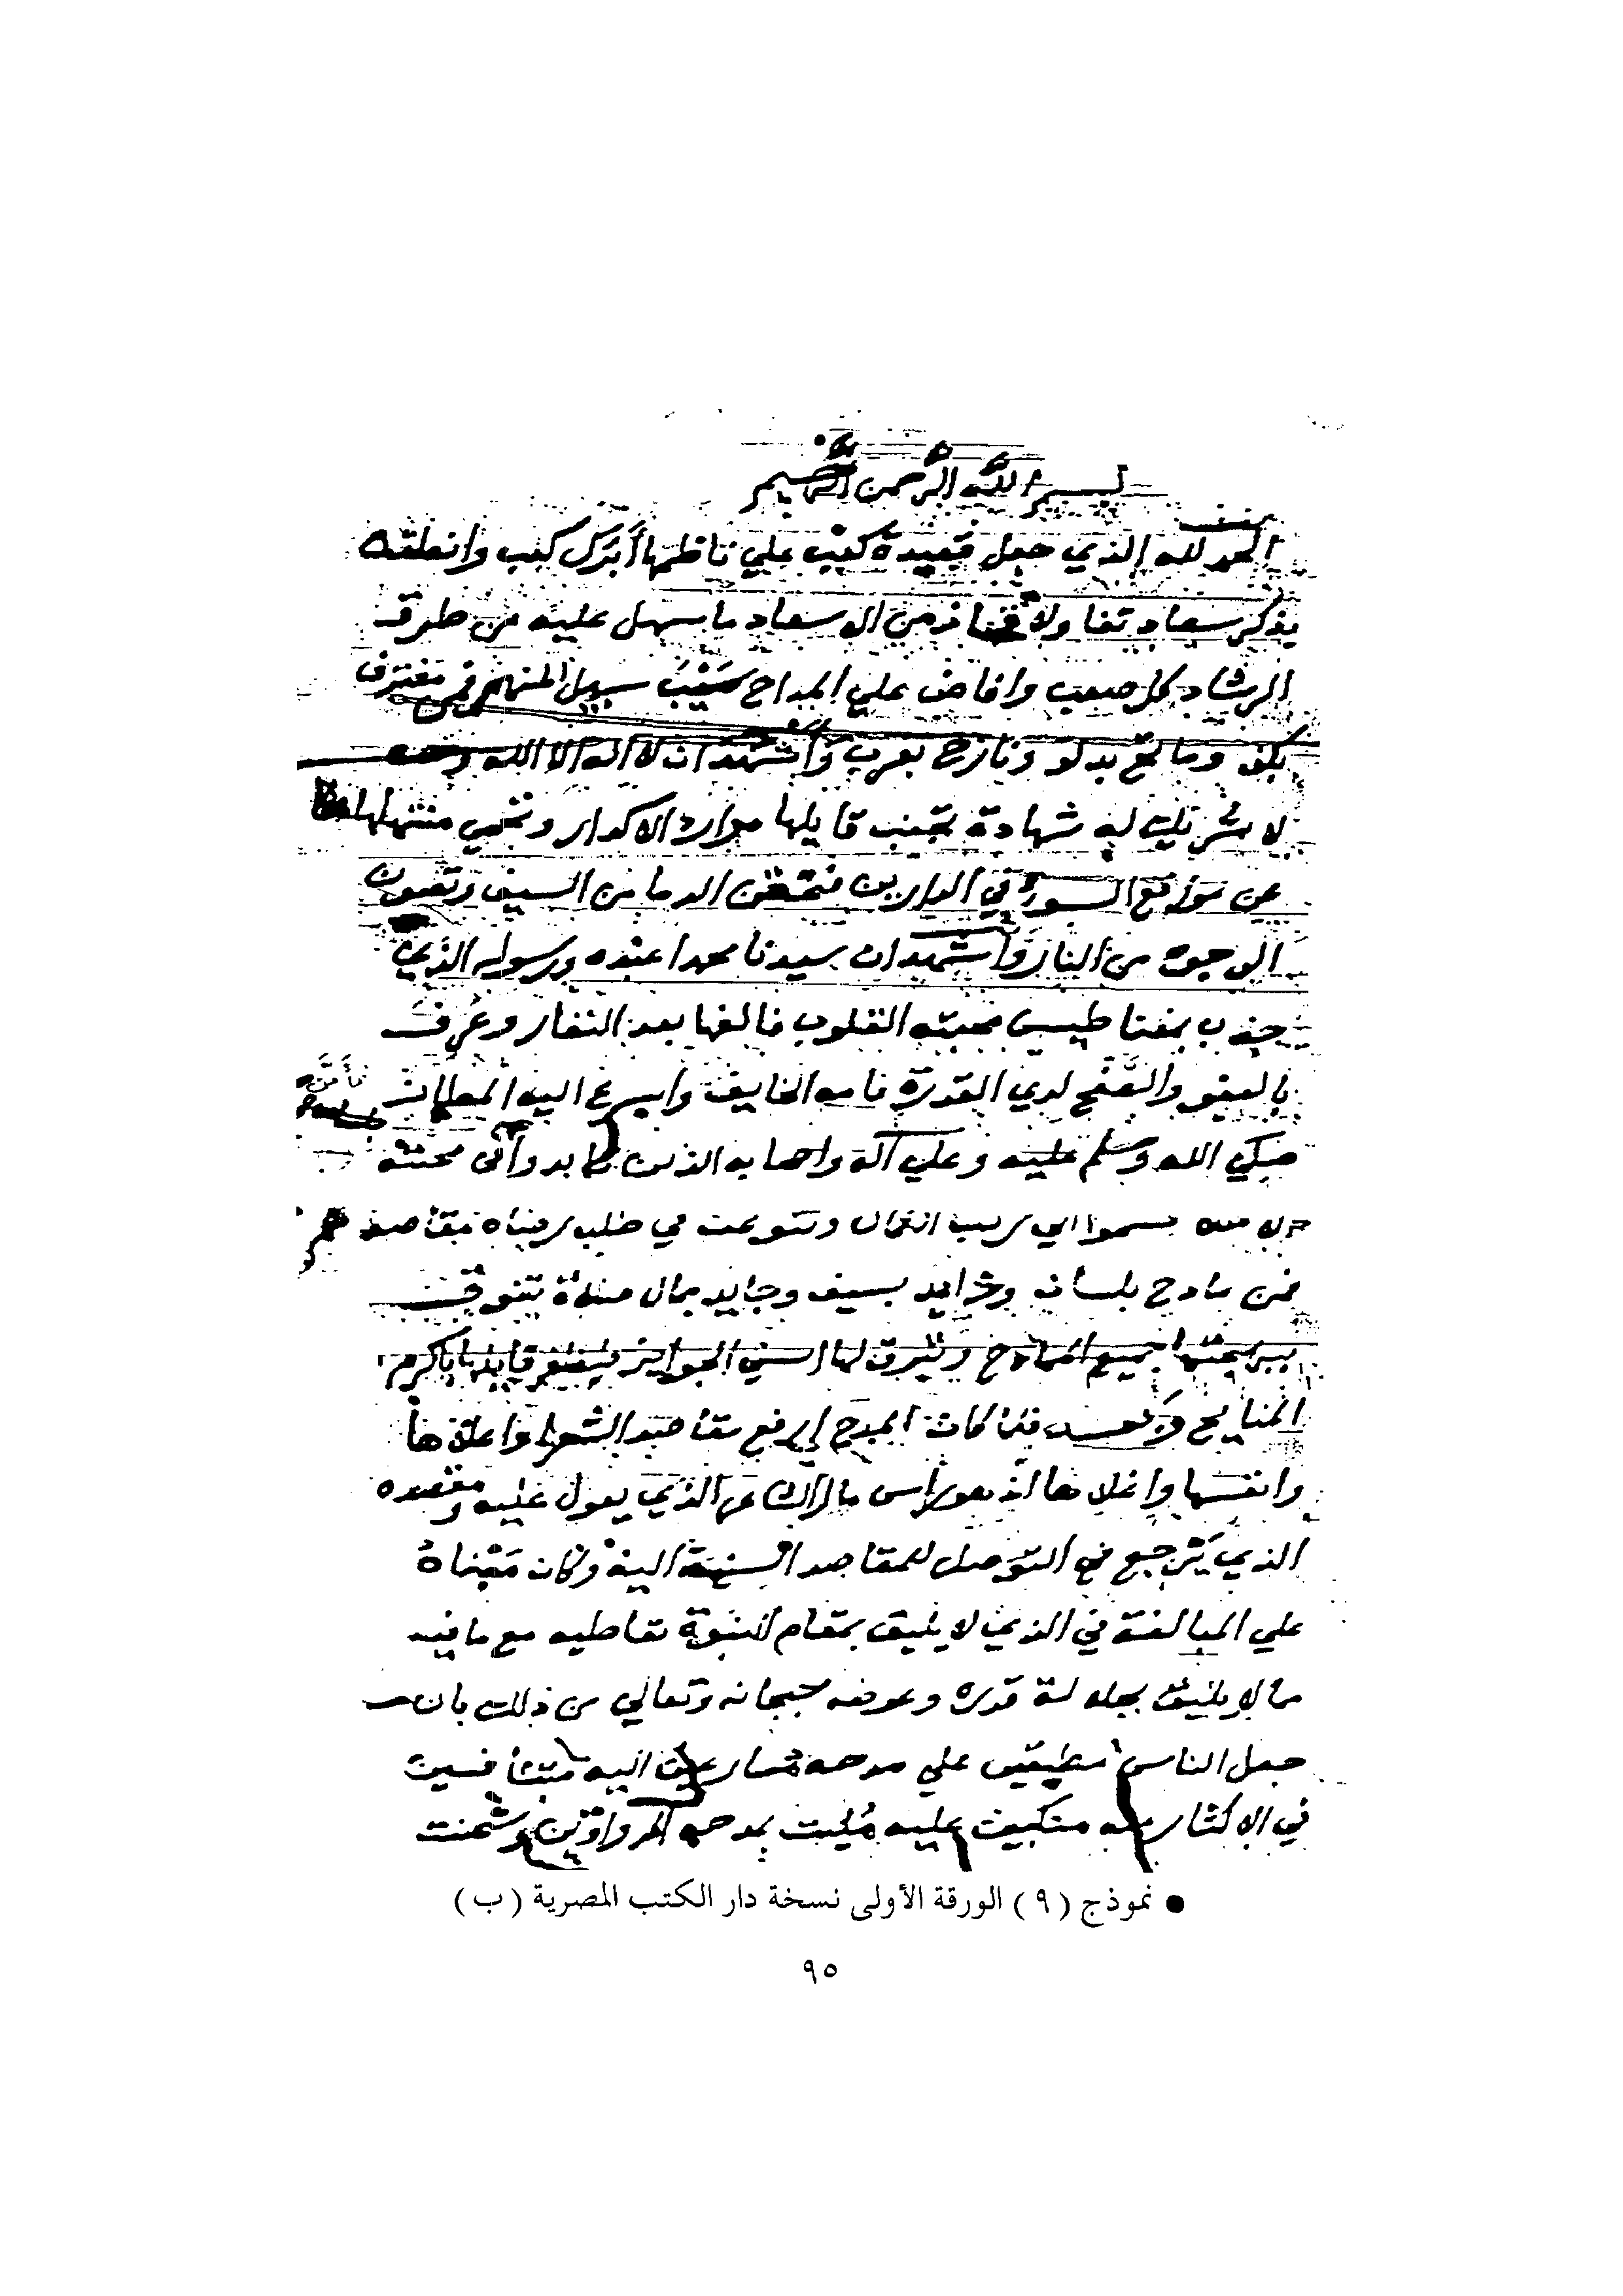 بسم الله الرحمن الرحيم
الحمد لله الذي جعل قصيدة كعب علي ناظمها أبرك كعب وانطقه
بذكر سعاد من الاسعاد ما سهل عليه من طرق
الرشاد كل صعب وافاض علي المداح سيب سببل المنهمر فمن مغترف
بكف وماتح بدلو ونازح بغرب وأشهد ان لا اله الا الله وحده
لا شريك له شهادة تجنب قايلها موارد الاكدار وتحمي منتهلها
عن مواقع السوء في الدارين فتحقن الدما من السيف وتصون
الوجوه من النار وأشهد ان سيدنا محمدا عبده ورسوله الذي
جذب بمغناطيس محبته القلوب فالفها بعد النفار وعرف
بالعفو والصفح لدي القدرة فامه الخايف واسرع اليه
صلي الله وسلم عليه وعلي آله واصحابه الذين في محبته
وتنوعت في طلب رضاه مقاصدهم
فمن مادح بلسان وذايد بسيف وجايد بمال صلاة تتفوق
ببركتها جميع المادح قايلها باكرم
المنايح وبعد فلما كان المدح ارفع مقاصد الشعرا واعلاها
وانفسها واغلاها اذ هو راس مال الشاعر الذي يعول عليه ومقصده
الذي يرجع في التوصل للمقاصد السنية اليه وكان مبناه
علي المبالغة في الذي لا يليق بمقام النبوة تعاطيه مع ما فيه
ما لا يليق بجلالة قدره وعوضه سبحانه وتعالي من ذلك بان
جعل الناس مطبقين علي مدحه مسارعين اليه متنافسين
في الاكثار منه منكبين عليه مليت بمدحه الدواوين وشحنت
● نموذج (٩) الورقة الأولى نسخة دار الكتب المصرية (ب)
٩٥